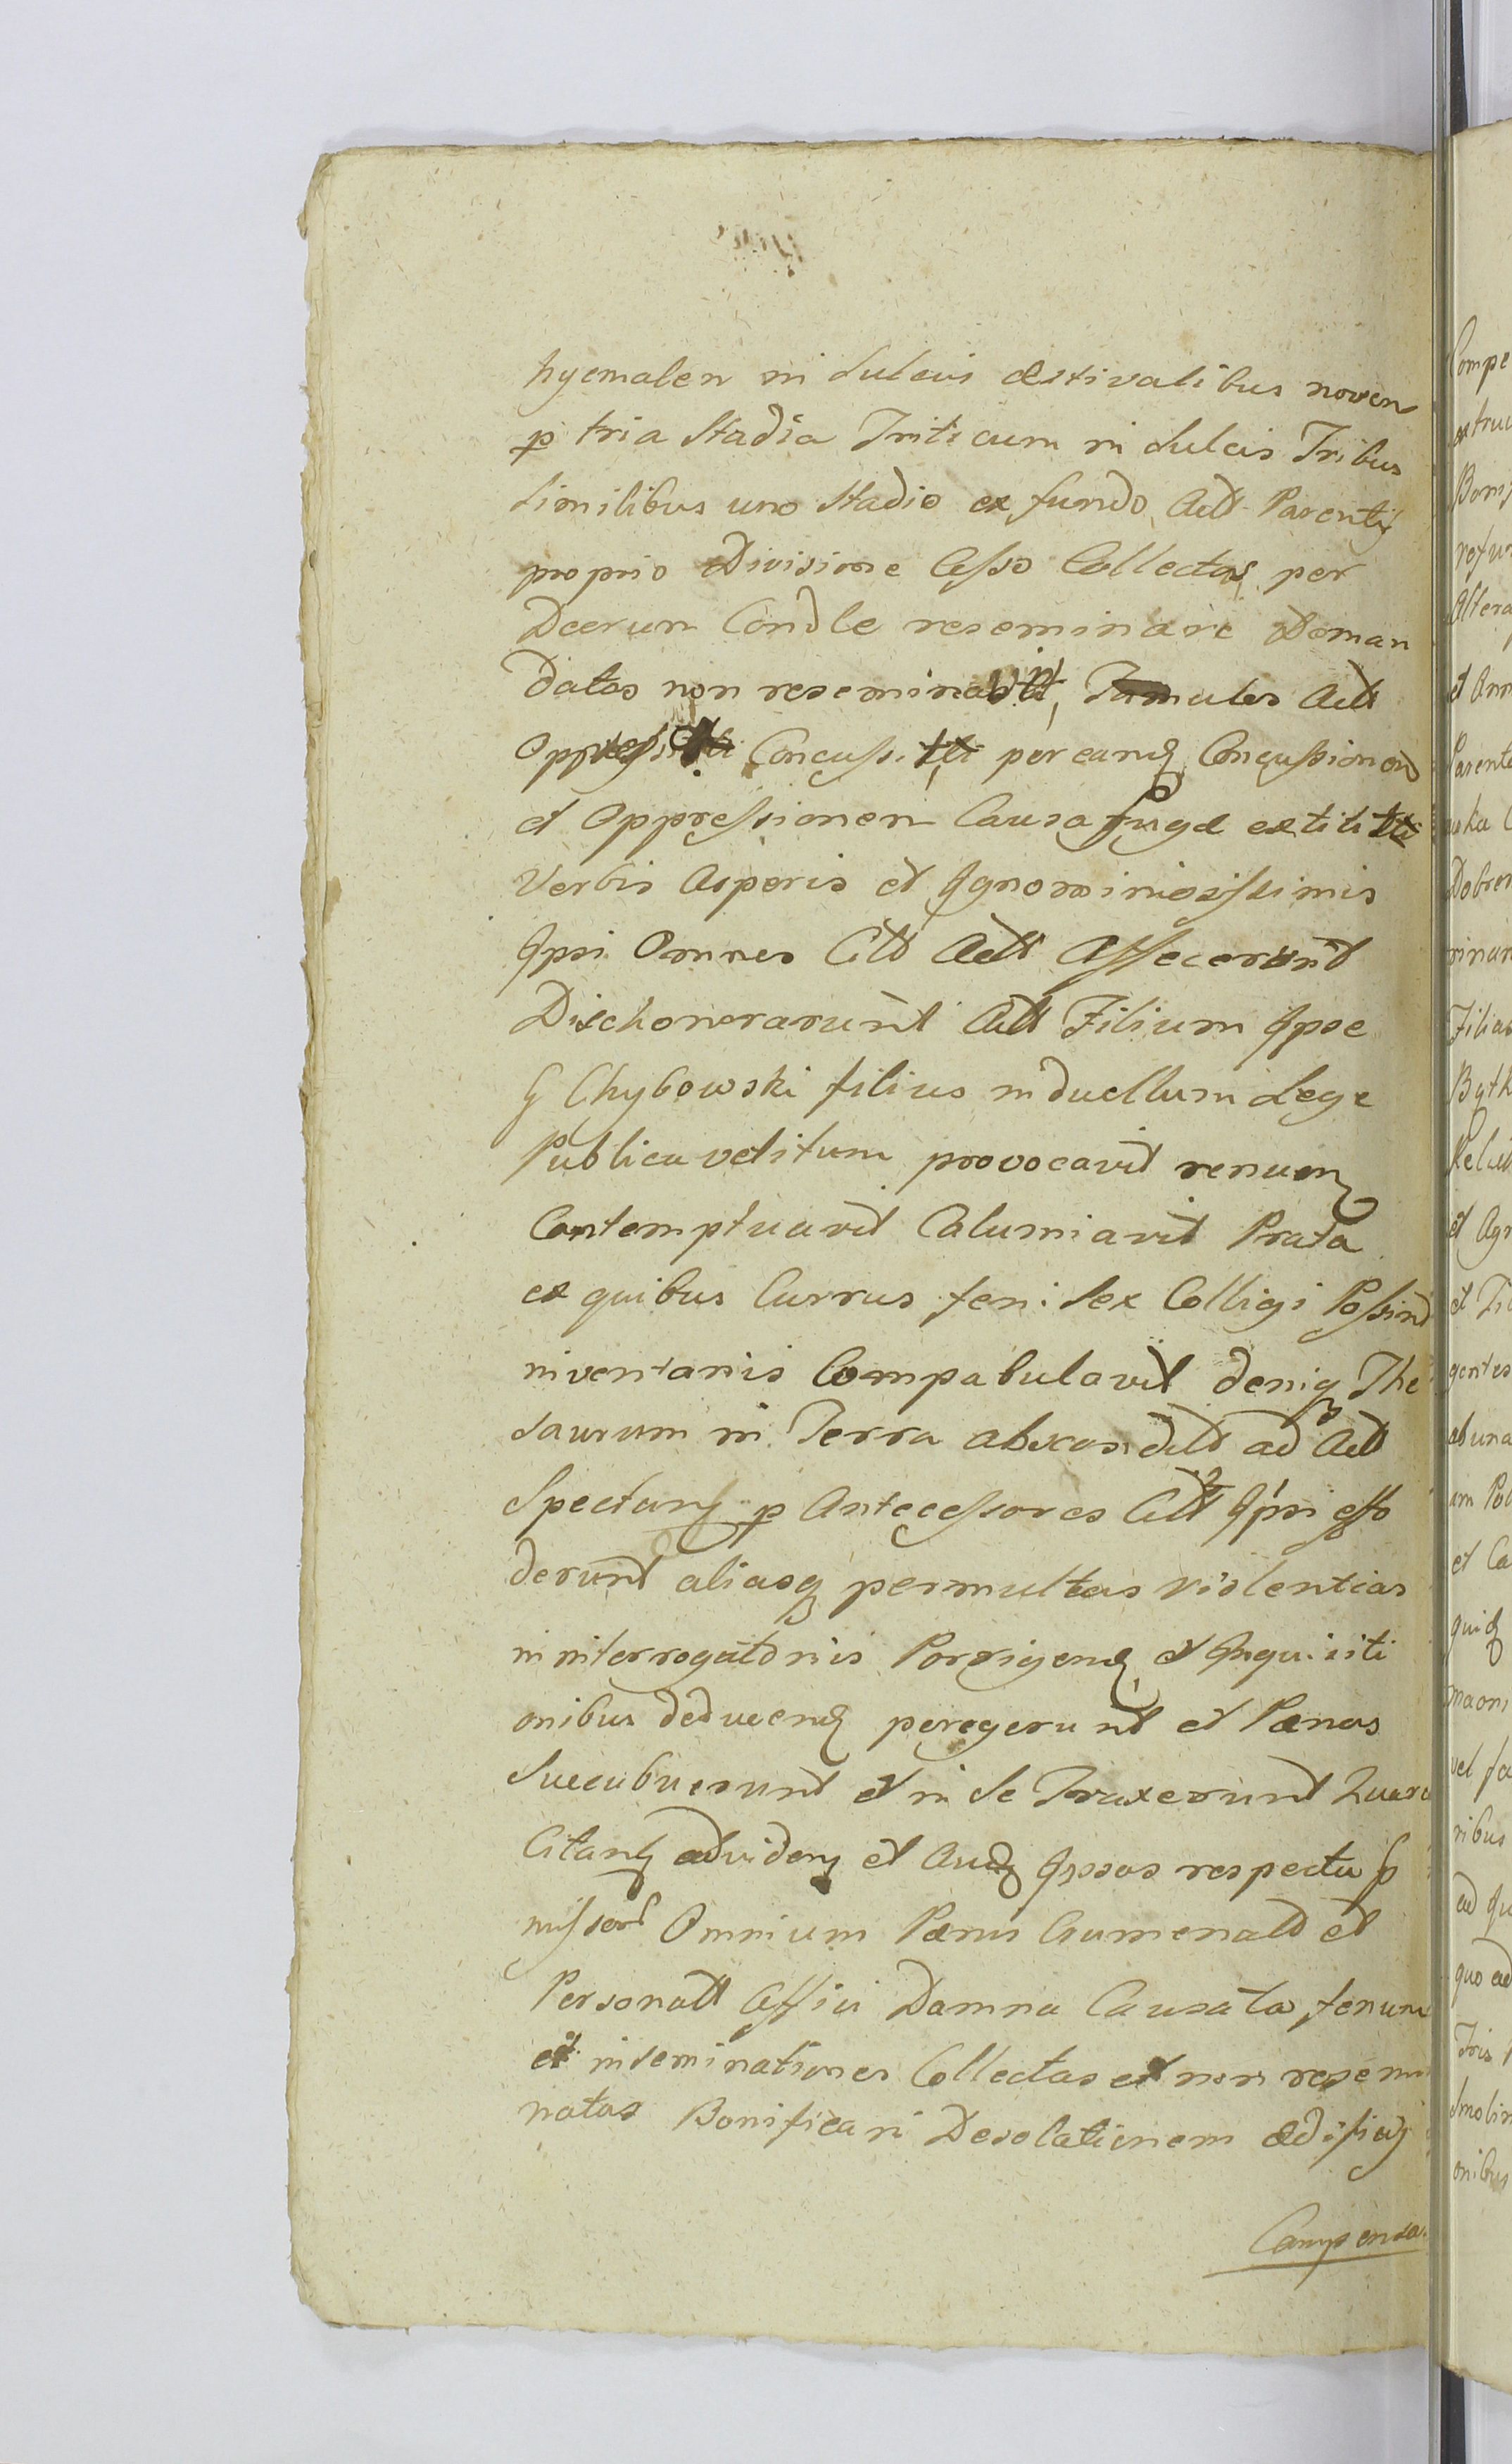 hyemalem in sulcis æstivalibus novem
p tria Stadia Triticum in sulcis Tribus
similibus uno Stadio ex fundo Actt Parentis
proprio Divisione Cesso Collectas per
Dcerum Condle reseminare Deman
datas non reseminavit, Famulos Actt
Oppressit Concussit per eamq Concussionem
et Oppressionem Causa fugæ extitit
Verbis Asperis et Ignominiosissimis
Ipsi Omnes Citt Actt Affecerunt
Dischonorarunt Actt Filium Ipse
G Chybowski filius in duellum Lege
Publica vetitum provocavit renuen
Contemptuavit Calumiavit Prata
ex quibus Currus feni sex Colligi Possint
inventariis Compabulavit deniq The
saurum in Terra abscondit ad Actt
Spectans p Antecessores Actt Ipsi effo
derunt aliasq permultas violentias
in interrogatoriis Porrigend et Inquisiti
onibus deducend peregerunt et Pænas
Succubuerunt et in se Traxerunt Quare
Citans ad viden et Aud Ipsos respectu p
missor Omnium Pænis Criminald et
Personatt Affici Damna Causata fenum
et inseminationes Collectas et non resemi
natas Bonificari Desolationem ædificy
Compensa

Compe
extruc
Bonif
refun
Altera
et Ann
Parente
ska C
Dobren
rinar
Filias
Byth
et Agn
et Ti
gentes
ab una
um Pol
et Ca
quid
maoni
vel fa
ribus
ad qu
quo ad
Tris
Smolin
onibus